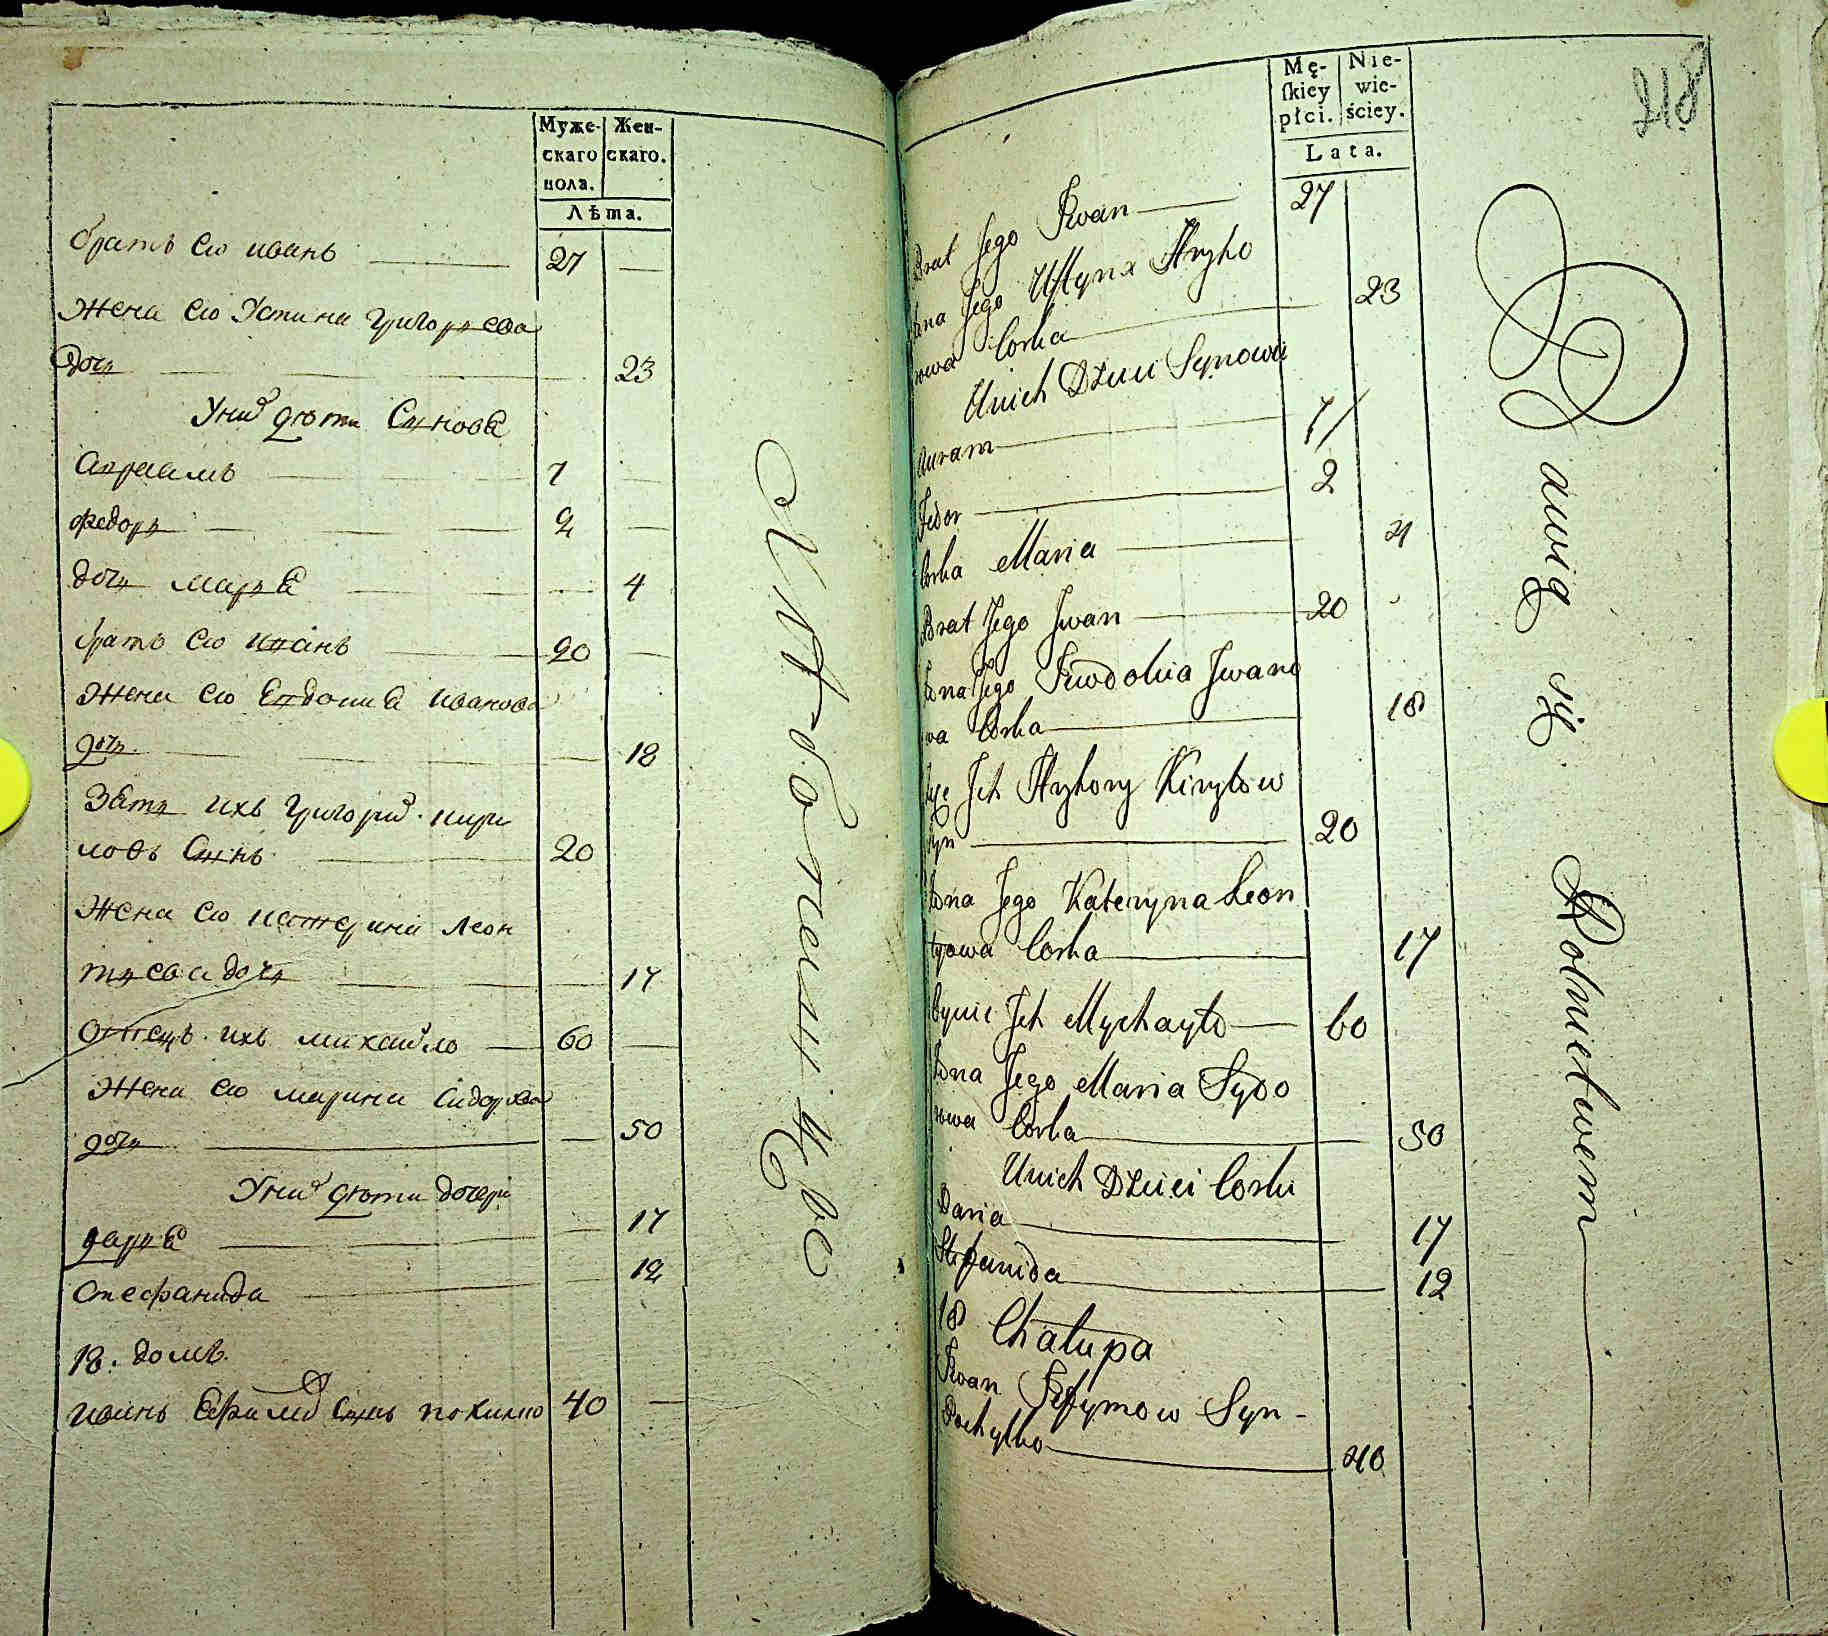 Муже-
скаго
пола.
Жен-
скаго.
Лѣта.
братъ его иванъ 27
Жена его Устина григорьева
дочь 23
Уних дѣти Сыновя
авраамъ 7
федоръ 2
дочь марья 4
братъ его иванъ 20
Жена его Евдокия Иванова
дочь 18
Зять ихъ григорий кири
ловъ Сынъ 20
Жена его катерина Леон
тьева дочь 17
отецъ ихъ михайло 60
Жена его марина Сидорова
дочь 50
Уних дѣти дочери
дарья 17
Стефанида 12
18. домъ.
иванъ Ефимов Сынъ похилко 40
218
Mę-
ſkiey
płci.
Nie-
wie-
ściey.
Lata.
Brat Jego Iwan 27
ona Jego Ustyna Hryho
rowa Corka 23
Unich Dzieci Synowie
auram 7
Fedor 2
Corka Maria 4
Brat Jego Iwan 20
Żona Jego Iewdokia Iwano
wa Corka 18
Jch Hryhory Kiryłow
Syn 20
Żona Jego Kateryna Leon
tyowa Corka 17
Oyciec Jch Mychayło 60
Żona Jego Maria Sydo
rowa Corka 50
Unich Dzieci Corki
Daria 17
Stefanida 12
18 Chałupa
Iwan Jefymow Syn
Pochyłko 40
bawią się Rolnictwem